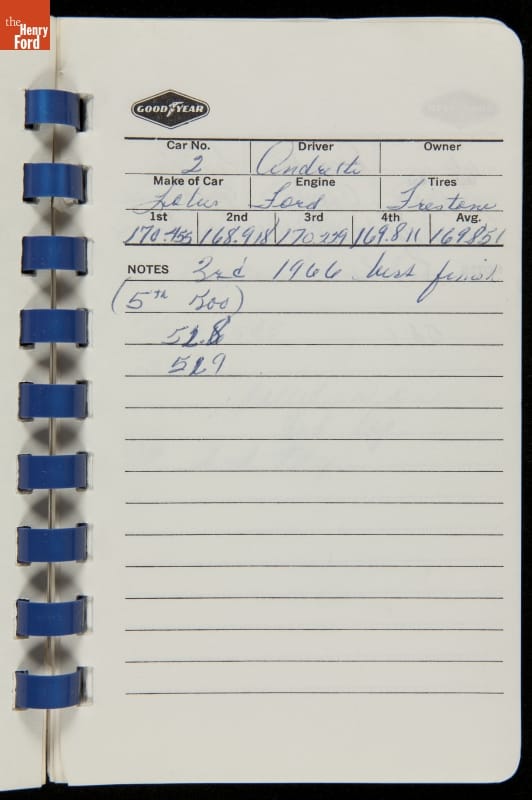 the
Henry
Ford
GOODYEAR
Car No. Driver Owner
2 Andretti
Make of Car Engine Tires
Lotus Ford Firestone
1st 2nd 3rd 4th Avg.
170.455 168.918 170.229 169.811 169.851
NOTES 3rd 1966 best finish
(5th 500)
52.8
52.9